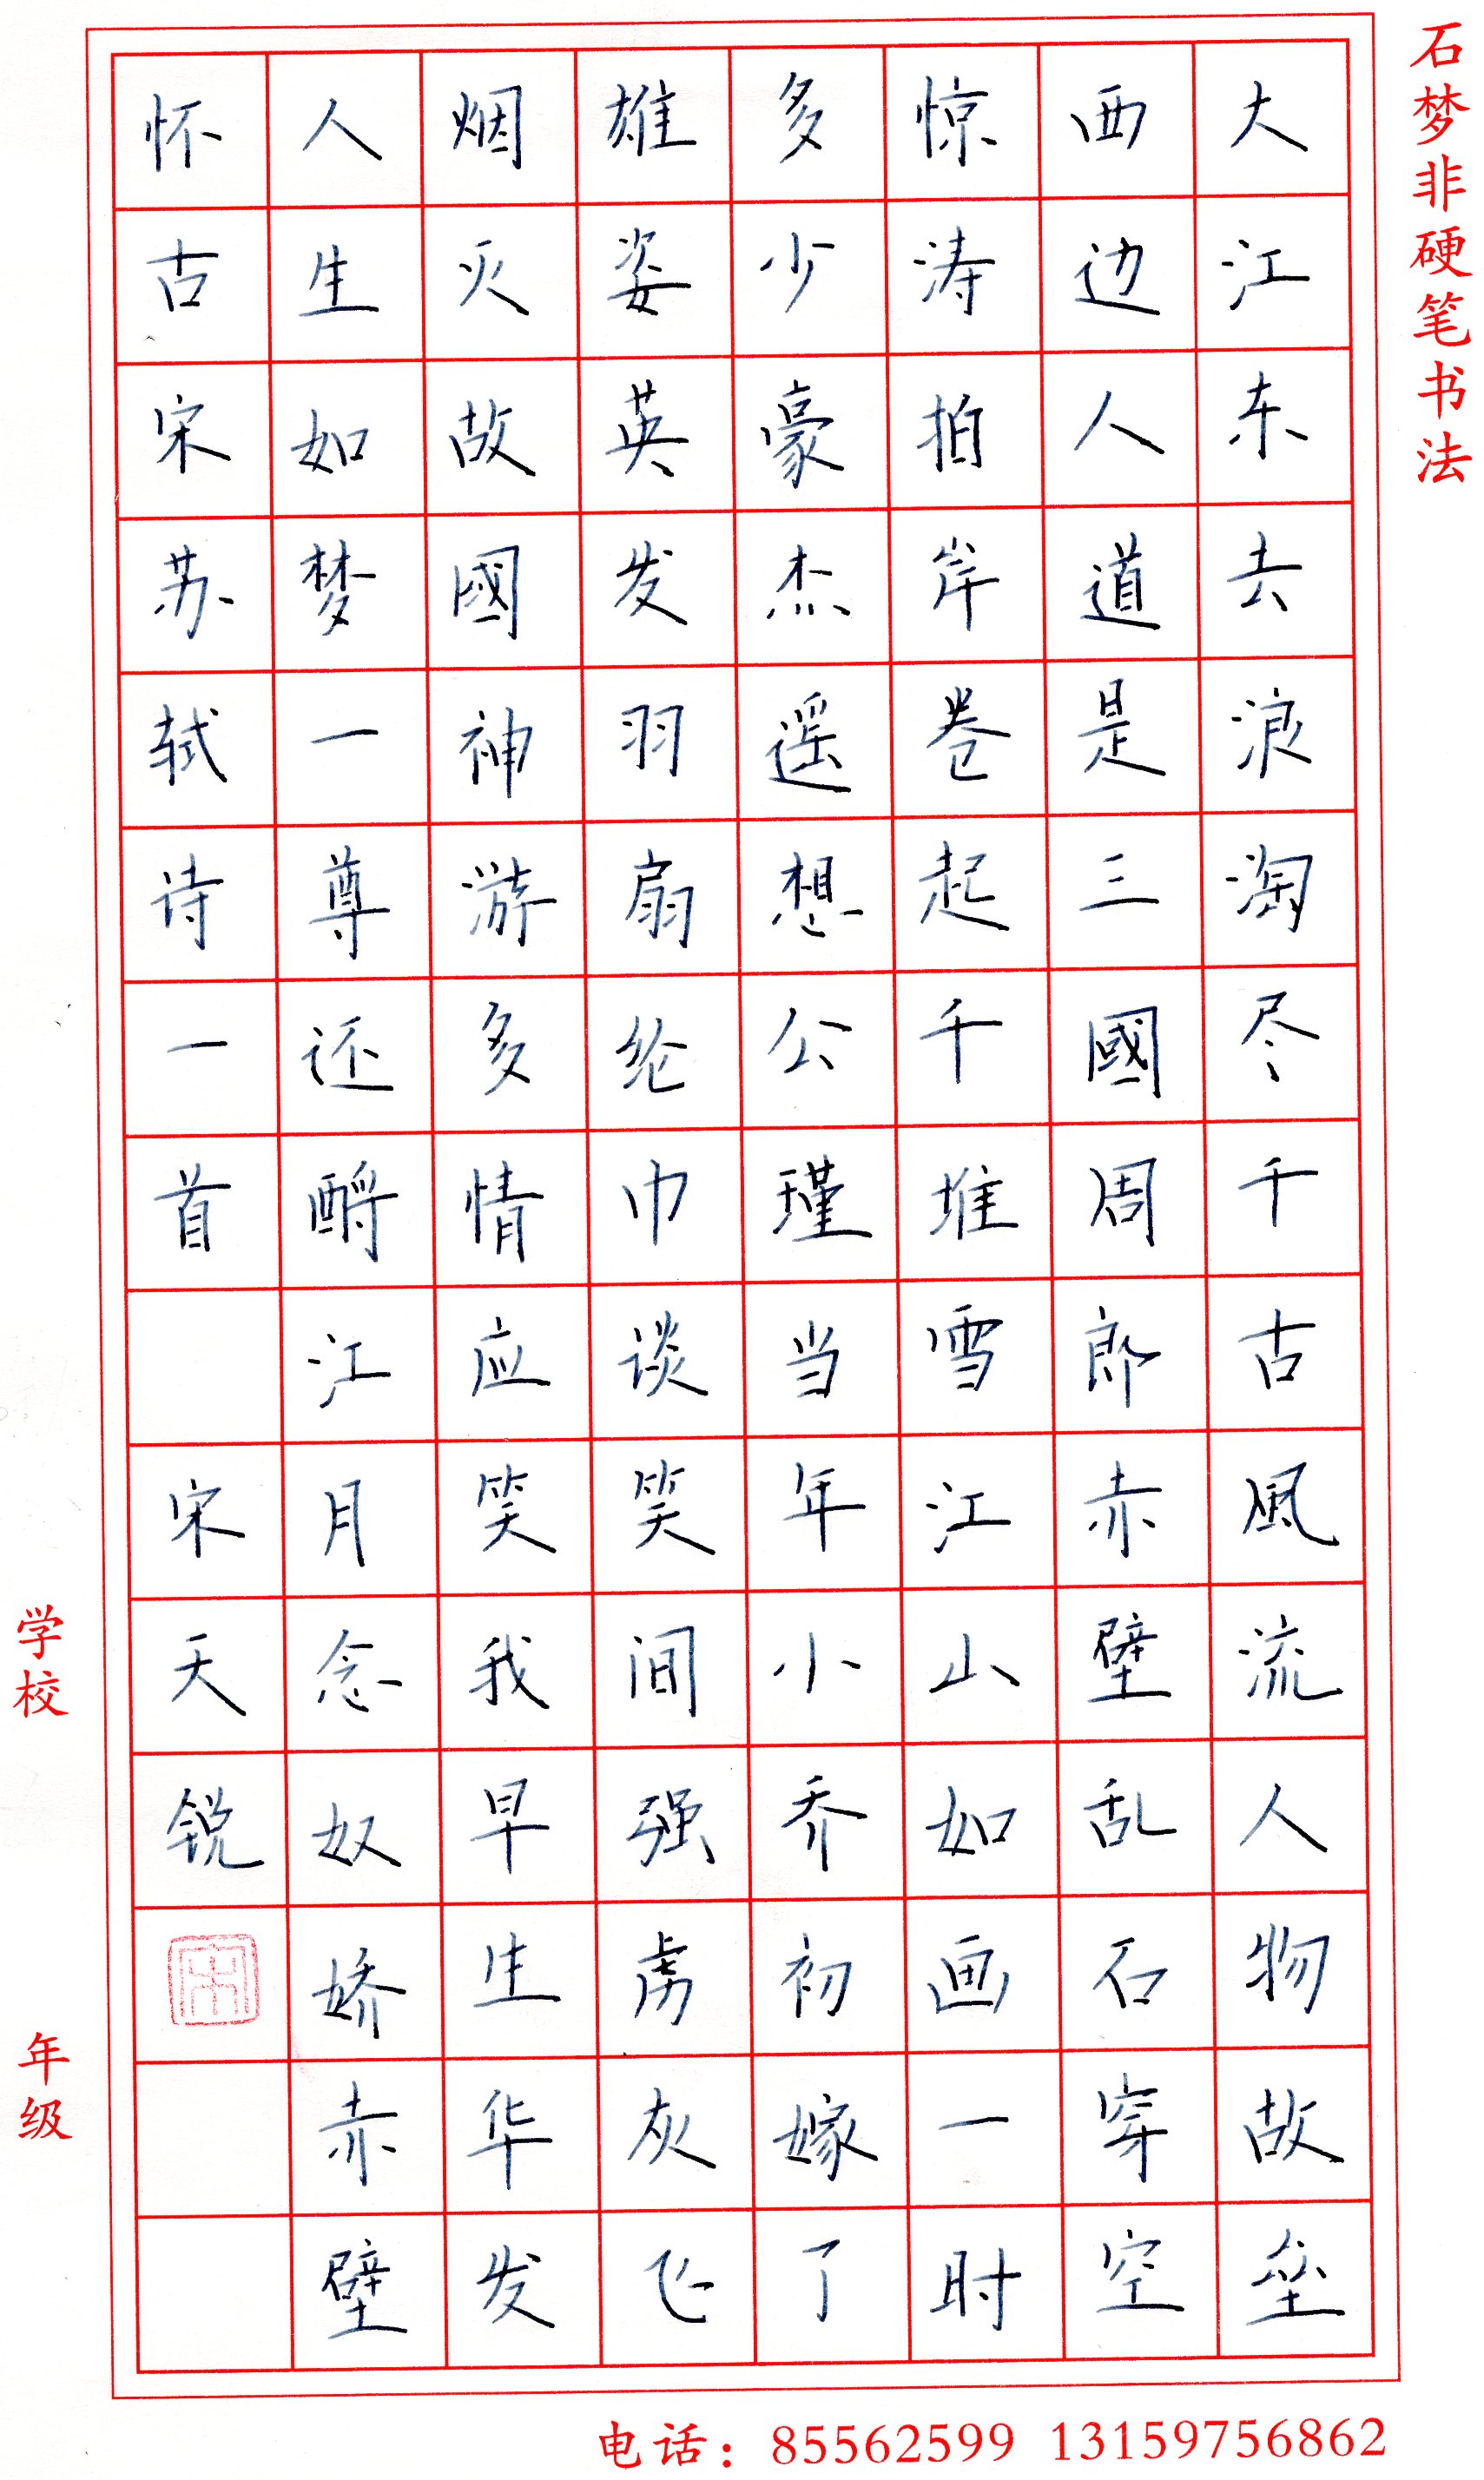 石梦非硬笔书法
大江东去浪淘尽千古風流人物故垒
西边人道是三國周郎赤壁乱石穿空
惊涛拍岸卷起千堆雪江山如画一时
多少豪杰遥想公瑾当年小乔初嫁了
雄姿英发羽扇纶巾谈笑间强虏灰飞
烟灭故國神游多情应笑我早生华发
人生如梦一尊还酹江月念奴娇赤壁
怀古宋苏轼诗一首 宋天锐
宋
学校
年级
电话：85562599 13159756862